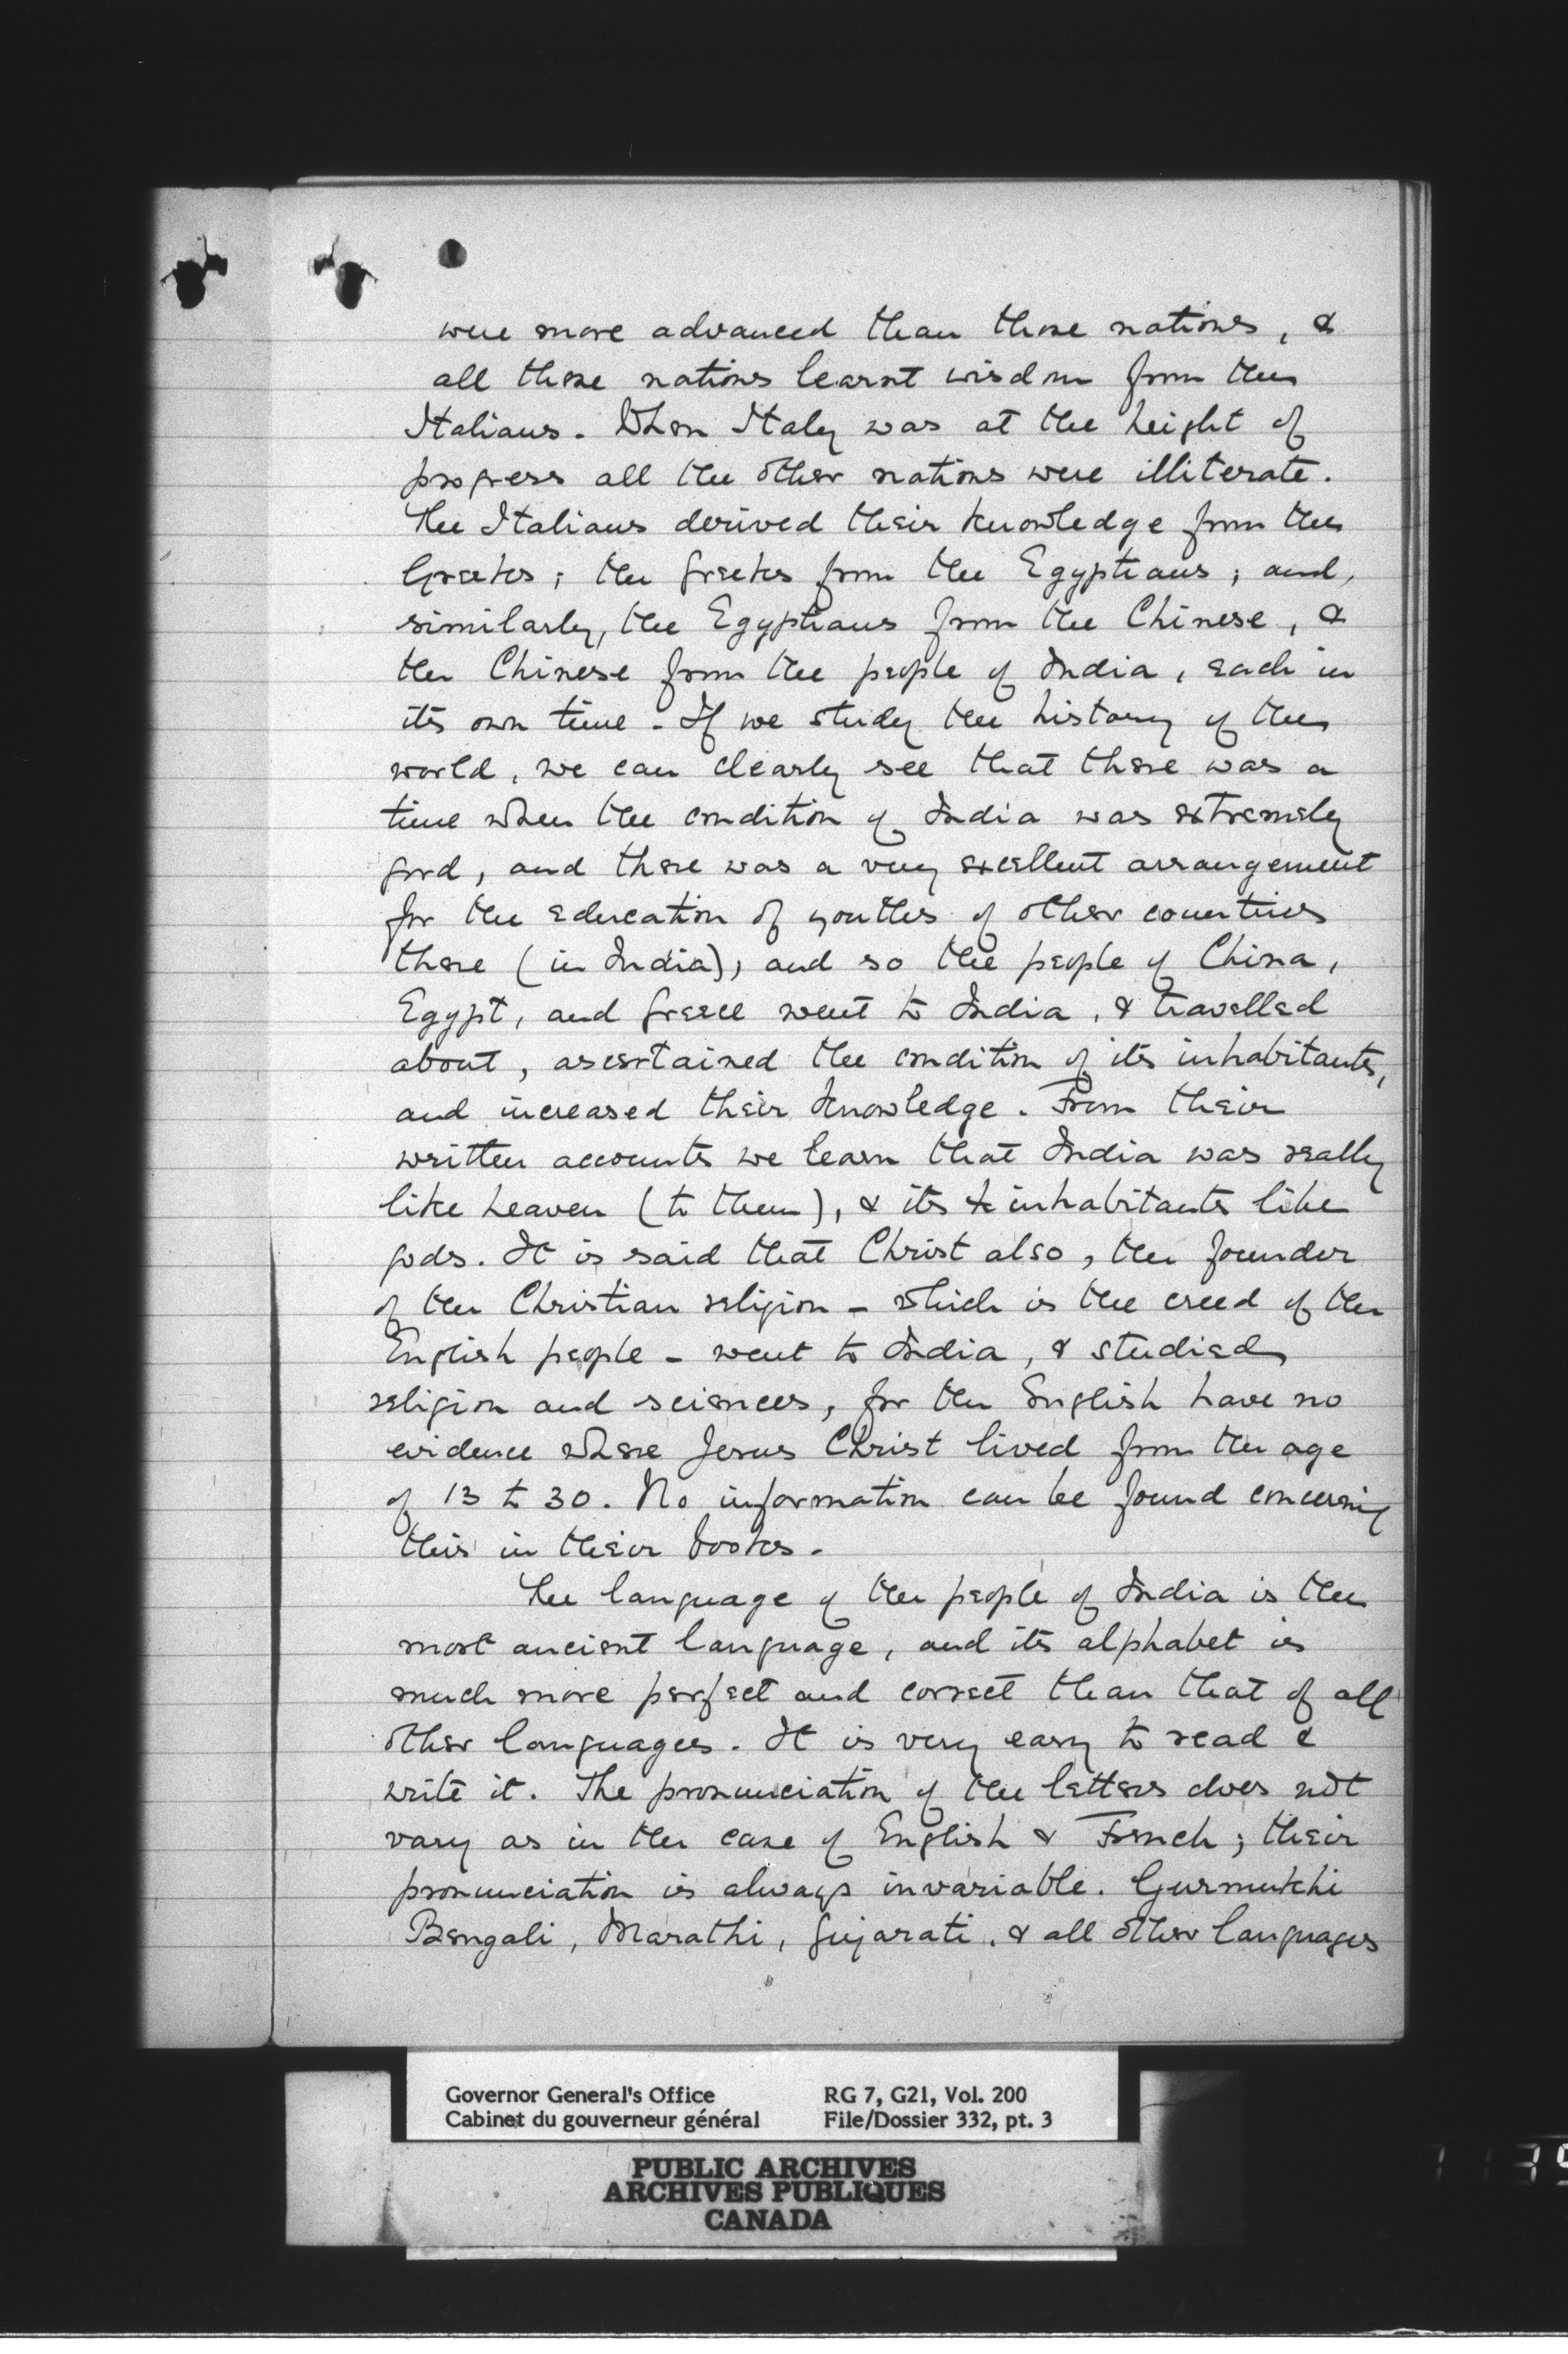 were more advanced than those nations, &
all those nations learnt wisdom from the
Italians. When Italy was at the height of
progress all the other nations were illiterate.
The Italians derived their knowledge from the
Greeks; the Greeks from the Egyptians; and,
similarly, the Egyptians from the Chinese, &
the Chinese from the people of India, each in
its own time. If we study the history of the
world, we can clearly see that there was a
time when the condition of India was extremely
good, and there was a very excellent arrangement
for the education of youths of other countries
there (in India), and so the people of China,
Egypt, and Greece went to India, & travelled
about, ascertained the condition of its inhabitants,
and increased their knowledge. From their
written accounts we learn that India was really
like heaven (to them), & its inhabitants like
gods. It is said that Christ also, the founder
of the Christian religion - which is the creed of the
English people - went to India, & studied
religion and sciences, for the English have no
evidence where Jesus Christ lived from the age
of 13 to 30. No information can be found concerning
this in their books.
The language of the people of India is the
most ancient language, and its alphabet is
much more perfect and correct than that of all
other languages. It is very easy to read &
write it. The pronunciation of the letters does not
vary as in the case of English & French; their
pronunciation is always invariable. Gurmukhi
Bengali, Marathi, Gujarati, & all other languages
Governor General's Office RG 7, G21, Vol. 200
Cabinet du gouverneur général File/Dossier 332, pt. 3
PUBLIC ARCHIVES
ARCHIVES PUBLIQUES
CANADA